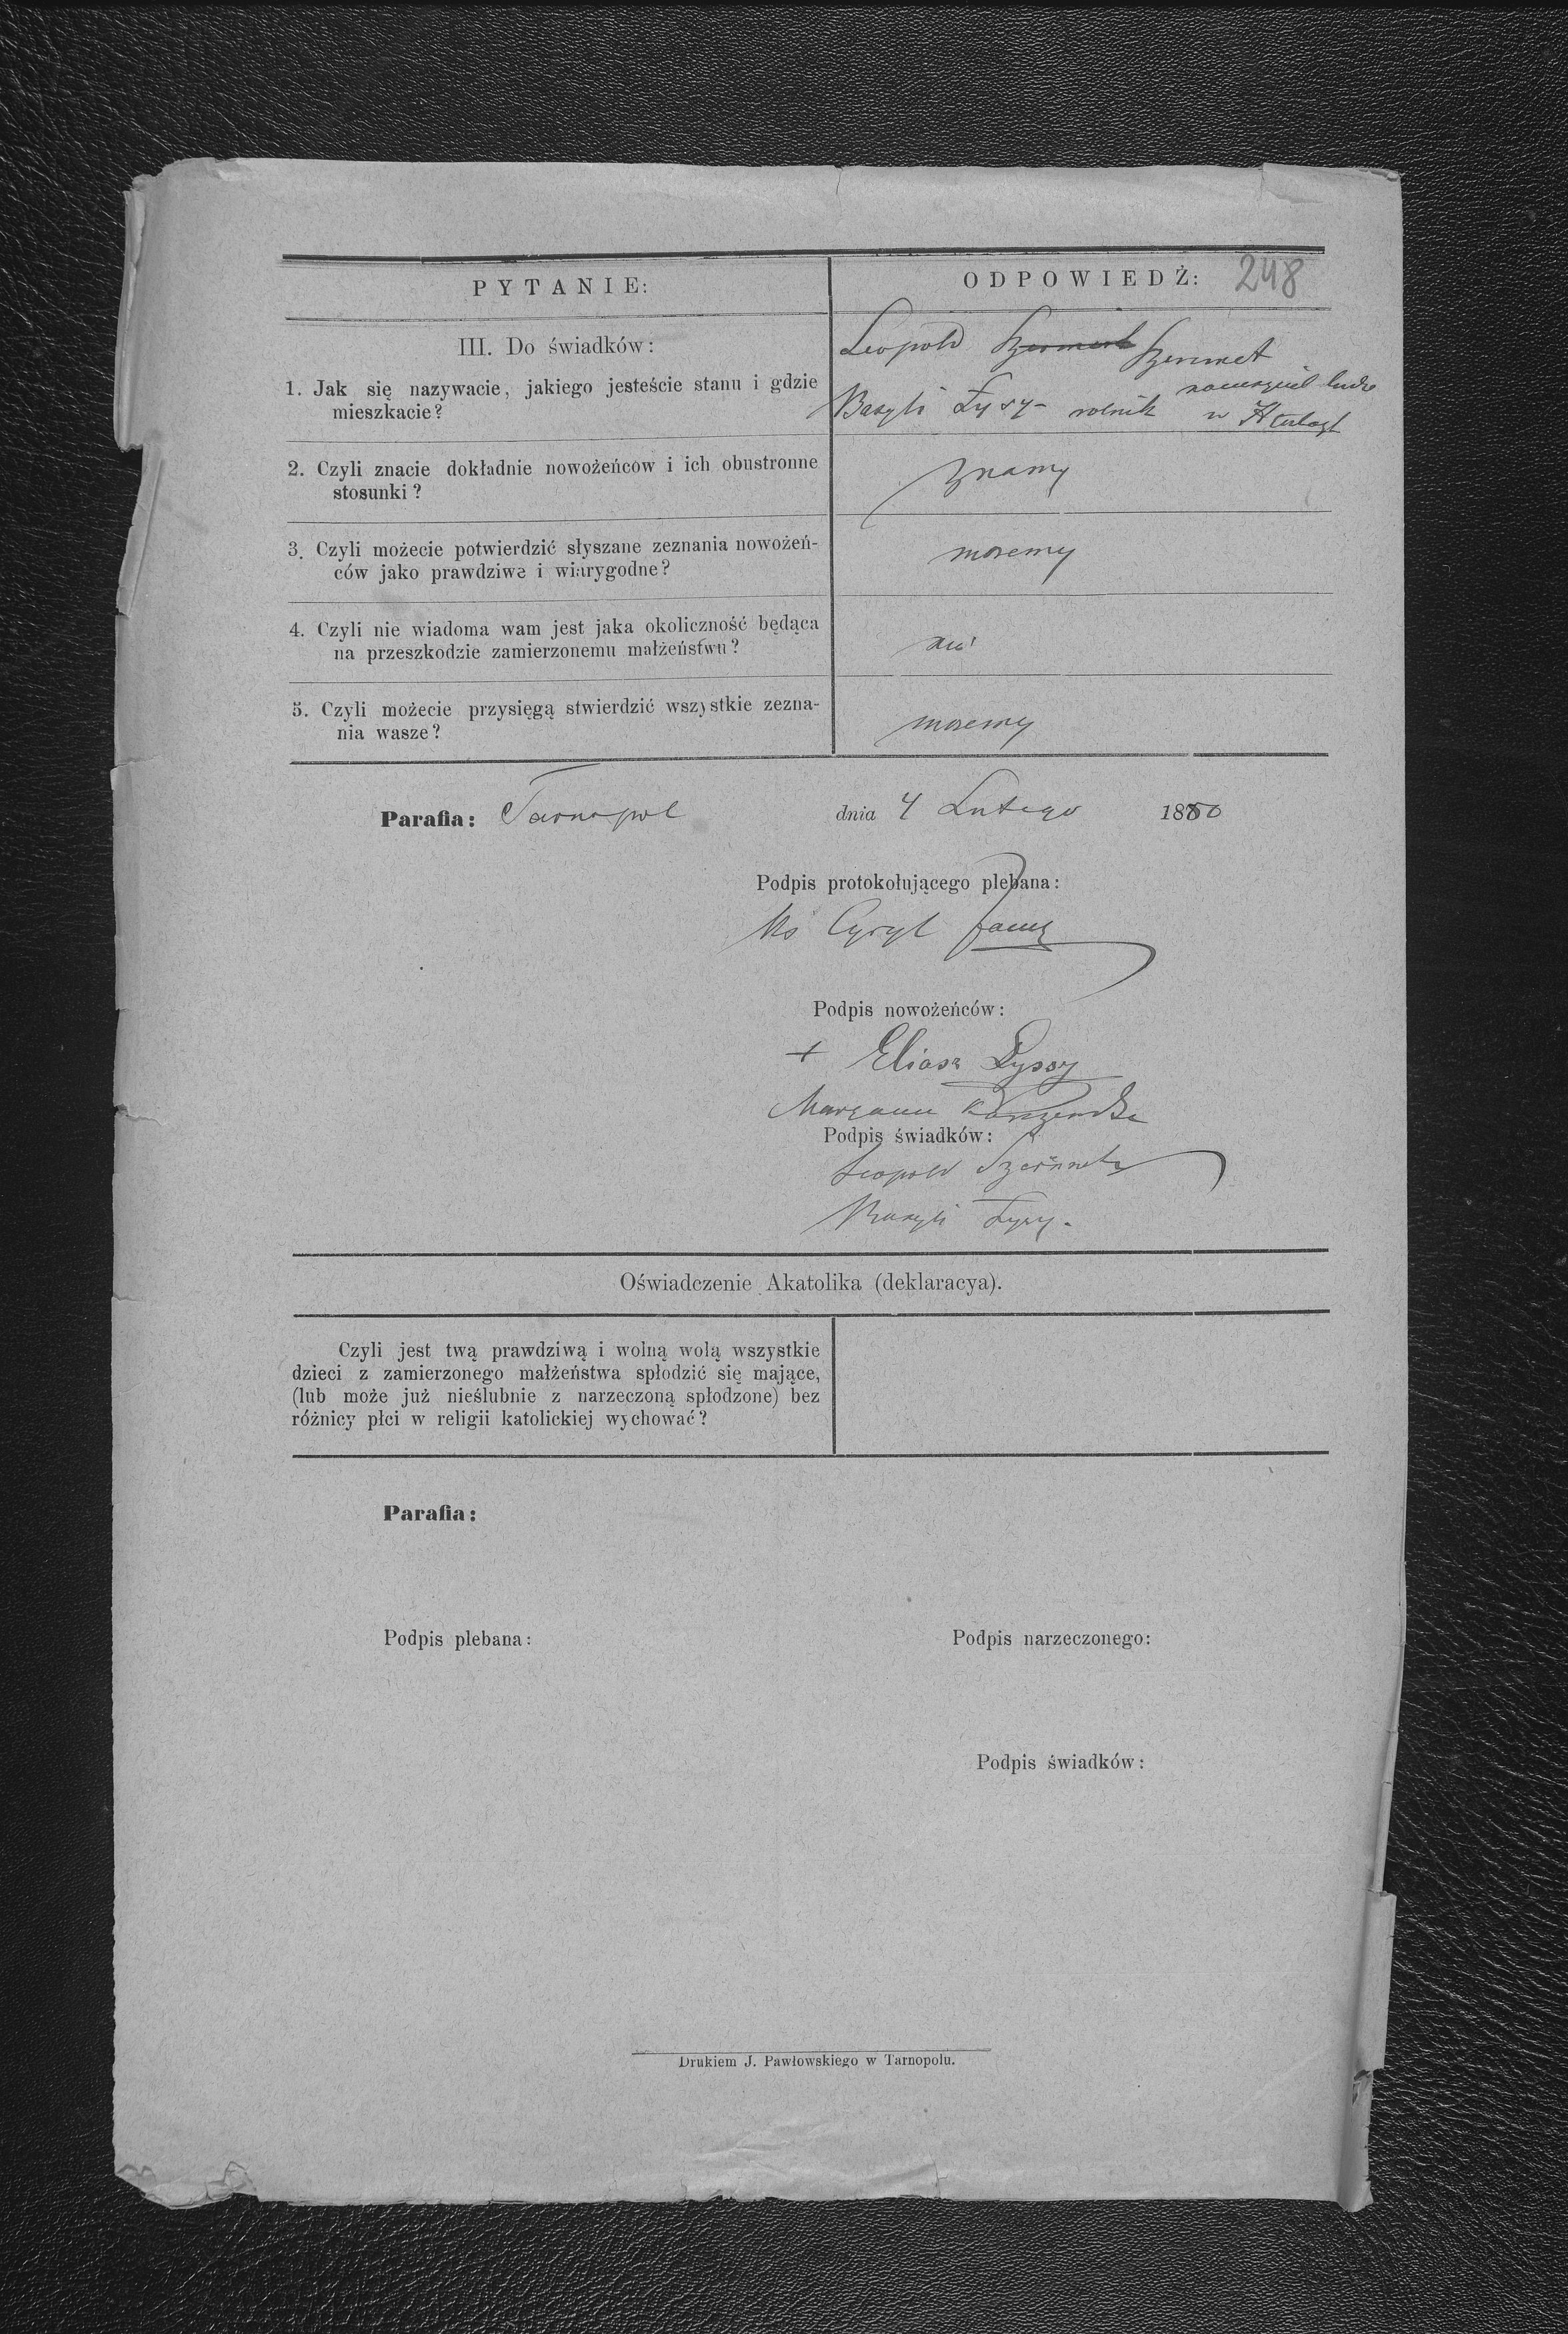 PYTANIE:
ODPOWIEDŹ: 248
III. Do świadków:
1. Jak się nazywacie, jakiego jesteście stanu i gdzie
mieszkacie?
Leopold Szeremet
Bazyli Łysy - rolnik w
2. Czyli znacie dokładnie nowożeńców i ich obustronne
stosunki?
znamy
3. Czyli możecie potwierdzić słyszane zeznania nowożeń-
ców jako prawdziwe i wiarygodne?
możemy
4. Czyli nie wiadoma wam jest jaka okoliczność będąca
na przeszkodzie zamierzonemu małżeństwu?
5. Czyli możecie przysięgą stwierdzić wszystkie zezna-
nia wasze?
możemy
Parafia: Tarnopol dnia 4 Lutego 1880
Podpis protokołującego plebana:
Ks Cyryl
Podpis nowożeńców:
+ Eliasz Łyssy
Maryanna
Podpis świadków:
Leopold Szeremeta
Bazyli Łysy.
Oświadczenie Akatolika (deklaracya).
Czyli jest twą prawdziwą i wolną wolą wszystkie
dzieci z zamierzonego małżeństwa spłodzić się mające,
(lub może już nieślubnie z narzeczoną spłodzone) bez
różnicy płci w religii katolickiej wychować?
Parafia:
Podpis plebana:
Podpis narzeczonego:
Podpis świadków:
Drukiem J. Pawłowskiego w Tarnopolu.